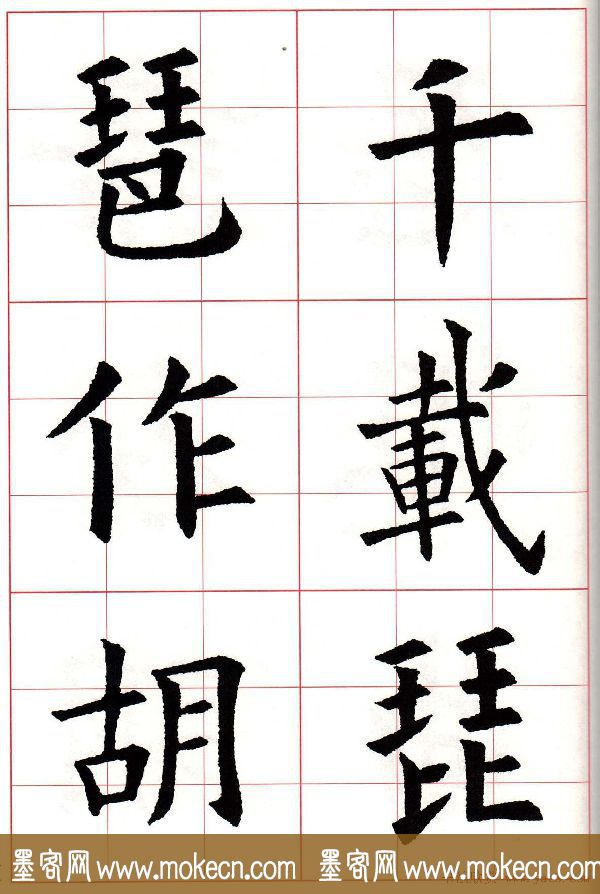 千載琵
琶作胡
墨客网 www.mokecn.com 墨客网 www.mokecn.com